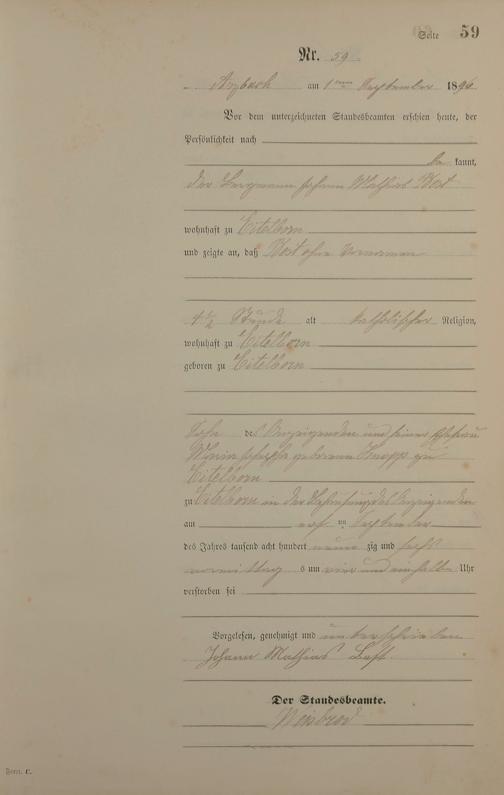 Seite 59
Nr. 59
Arzbach am 1ten September 1896
Vor dem unterzeichneten Standesbeamten erschien heute, der
Persönlichkeit nach
be kannt,
der Bergmann Johann Mathias
wohnhaft zu Eitelborn
und zeigte an, daß ohne Vornamen
4 1/2 Stunde alt katholischer Religion,
wohnhaft zu Eitelborn
geboren zu Eitelborn
Sohn des Anzeigenden und seiner Ehefrau
Maria geborene Knopp zu
Eitelborn
zu Eitelborn in der Behausung des Anzeigenden
am ersten September
des Jahres tausend acht hundert neun zig und sechs
vormittag s um vier und einhalb Uhr
verstorben sei
Vorgelesen, genehmigt und unterschrieben
Johann Mathias
Der Standesbeamte.
Weisbrod
Form. C.